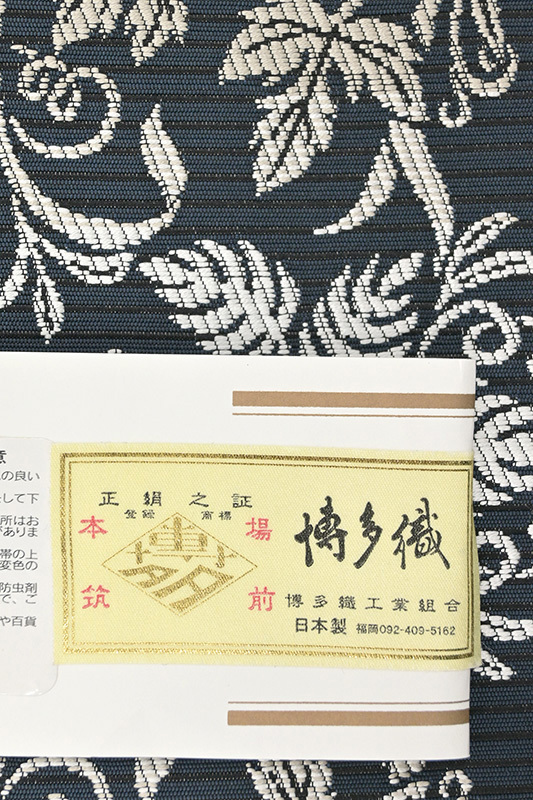 意
の良い
して下
所はお
がありま
帯の上
変色の
防虫剤
で、こ
や百貨
正絹之証
登録 商標
本場
筑前
博多織
博多織工業組合
日本製 福岡092-409-5162